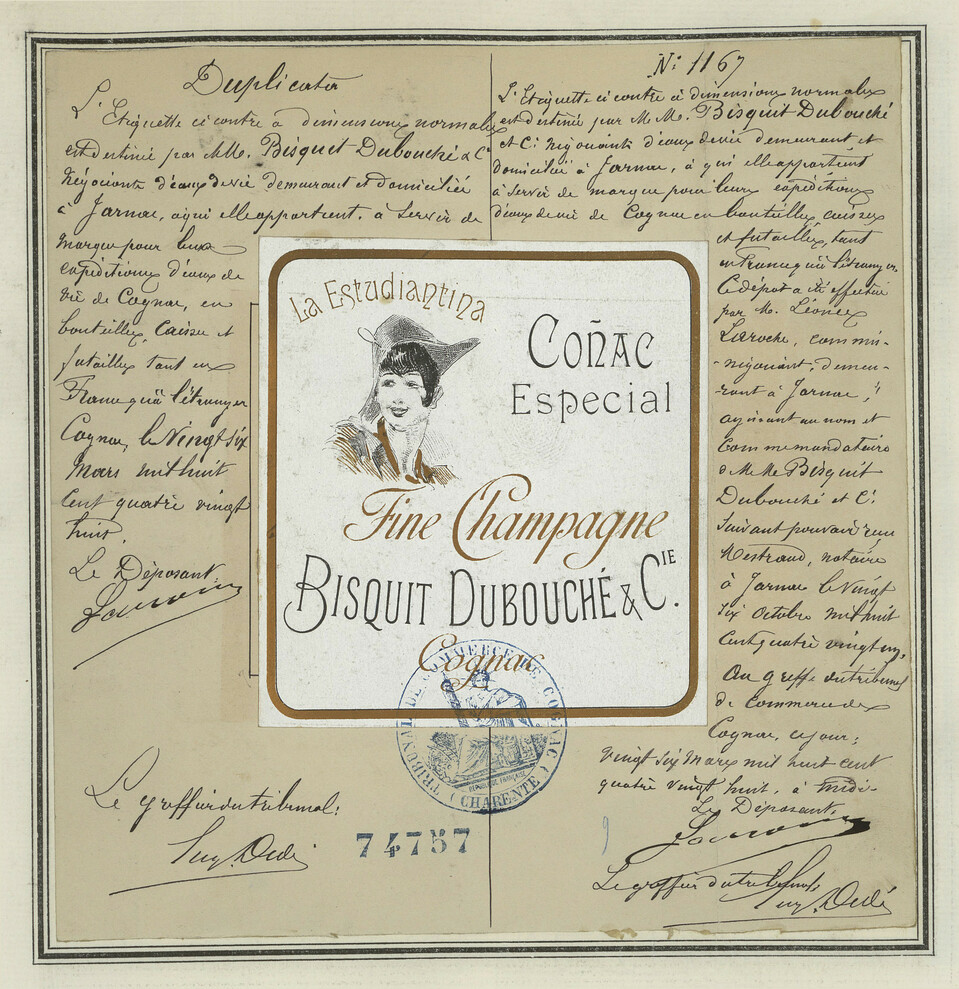 Duplicata
L'Etiquette ci contre à dimensions normales
est destinée par MM. Bisquit Dubouché & Cie
Négociants d'eaux de vie demeurant et domiciliée
à Jarnac, à qui elle appartient. à servir de
marque pour leurs
expéditions d'eaux de
vie de Cognac, en
bouteilles, caisses et
futailles tant en
France qu'à l'étranger
Cognac, le Vingt six
Mars mil huit
cent quatre vingt
huit.
Le Déposant
Le greffier du tribunal:
No 1167
L'Etiquette ci contre à dimensions normales
est destinée par M.M. Bisquit Dubouché
et Cie Négociants d'eaux de vie demeurant et
domiciliée à Jarnac, à qui elle appartient
à servir de marque pour leurs expéditions
d'eaux de vie de Cognac en bouteilles, caisses
et futailles, tant
en France qu'à l'étranger
Ce dépôt a été effectué
par M. Léonce
Laroche, commis-
négociant, demeu-
rant à Jarnac,
agissant au nom et
comme mandataire
de MM Bisquit
Dubouché et Cie
suivant pouvoir reçu
Mestraud, notaire
à Jarnac le Vingt
six Octobre mil huit
cent quatre vingt
Au greffe du tribunal
de Commerce de
Cognac, ce jour:
vingt six Mars mil huit cent
quatre vingt huit, à midi.
Le Déposant.
Le greffier du tribunal
La Estudiantina
Coñac
Especial
Fine Champagne
Bisquit Dubouché & Cie.
Cognac
TRIBUNAL DE COMMERCE DE COGNAC
(CHARENTE)
RÉPUBLIQUE FRANÇAISE
74757
9